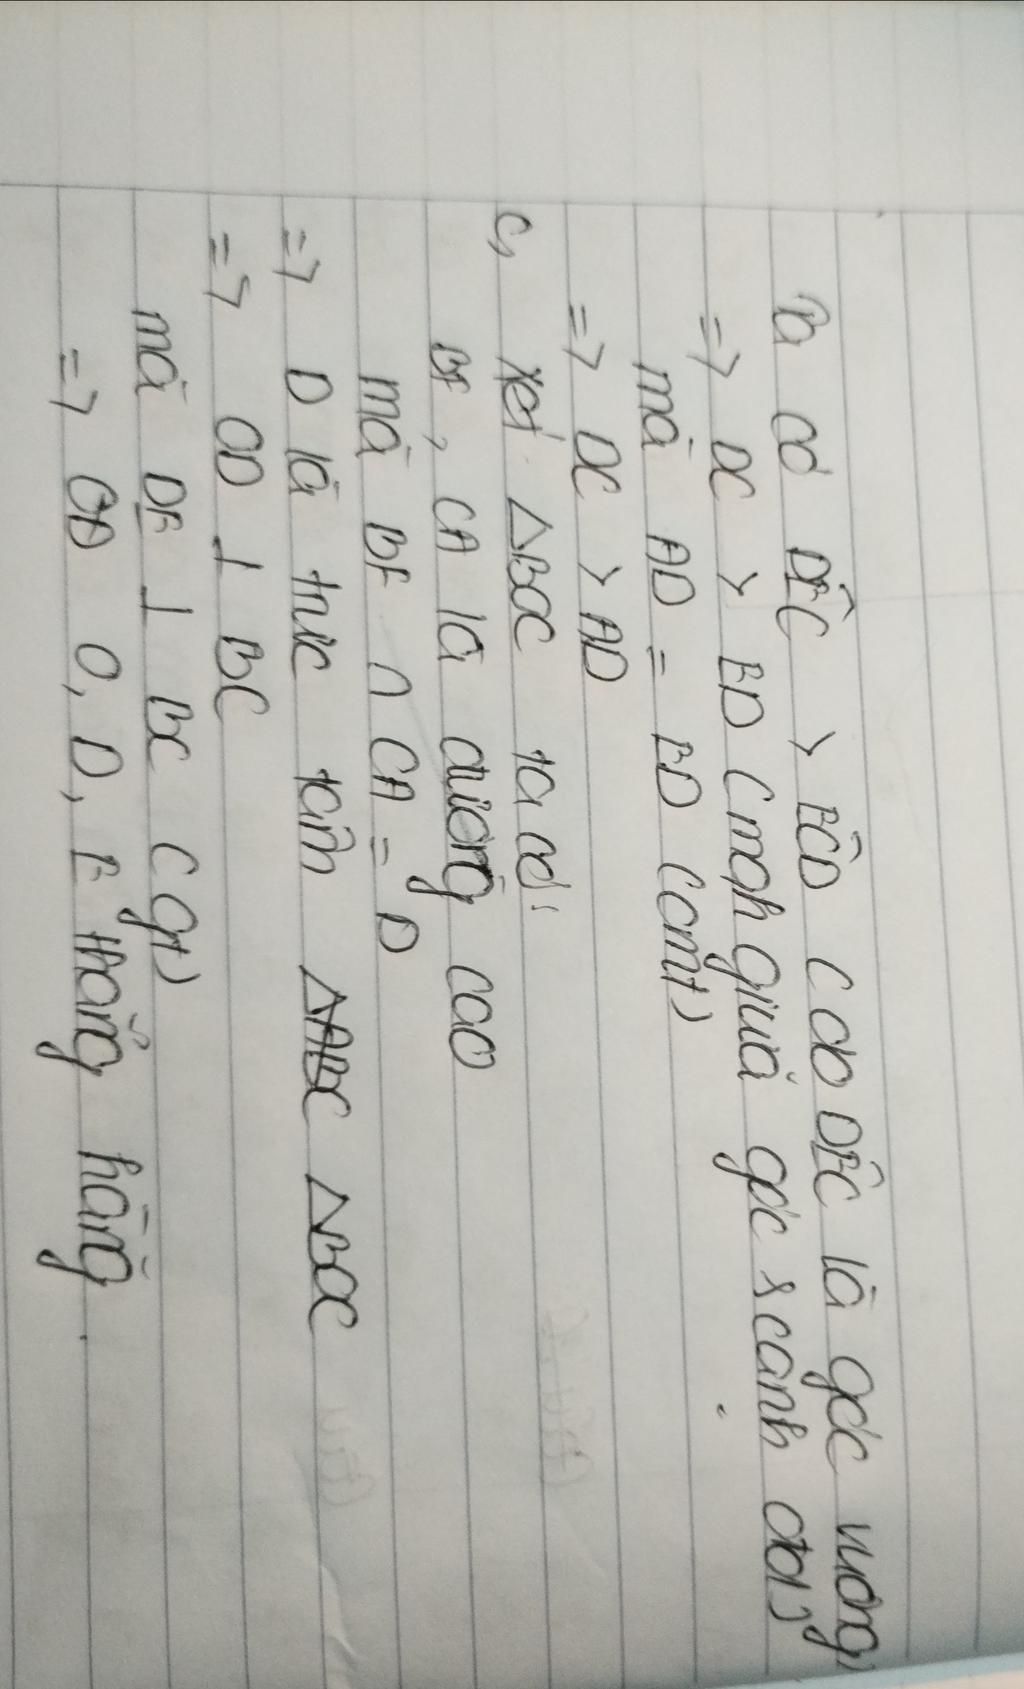 Ta có DÊC > ÊCD ( do DÊC là góc vuông)
=> DC > ED ( mqh giữa góc & cạnh đối)
mà AD = ED (cmt)
=> DC > AD
c, Xét △BOC ta có:
BF, CA là đường cao
mà BF ∩ CA = D
=> D là trực tâm △ABC △BOC
=> OD ⊥ BC
mà DE ⊥ BC (gt)
=> O, D, E thẳng hàng.